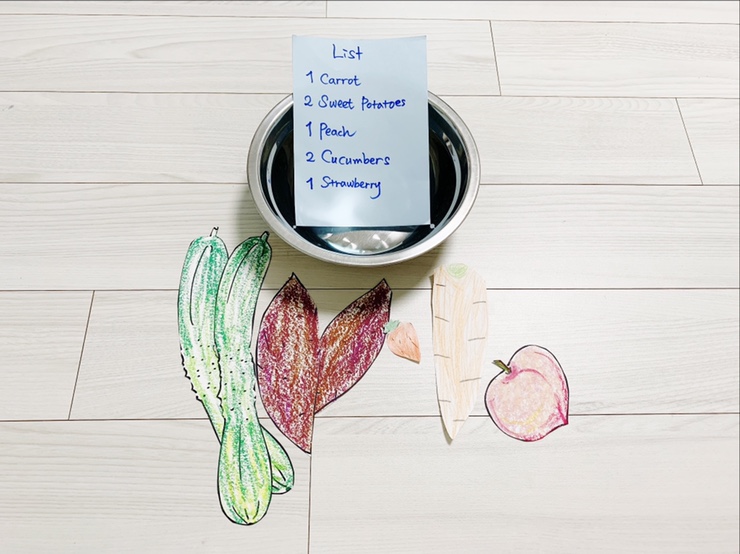 List
1 Carrot
2 Sweet Potatoes
1 Peach
2 Cucumbers
1 Strawberry